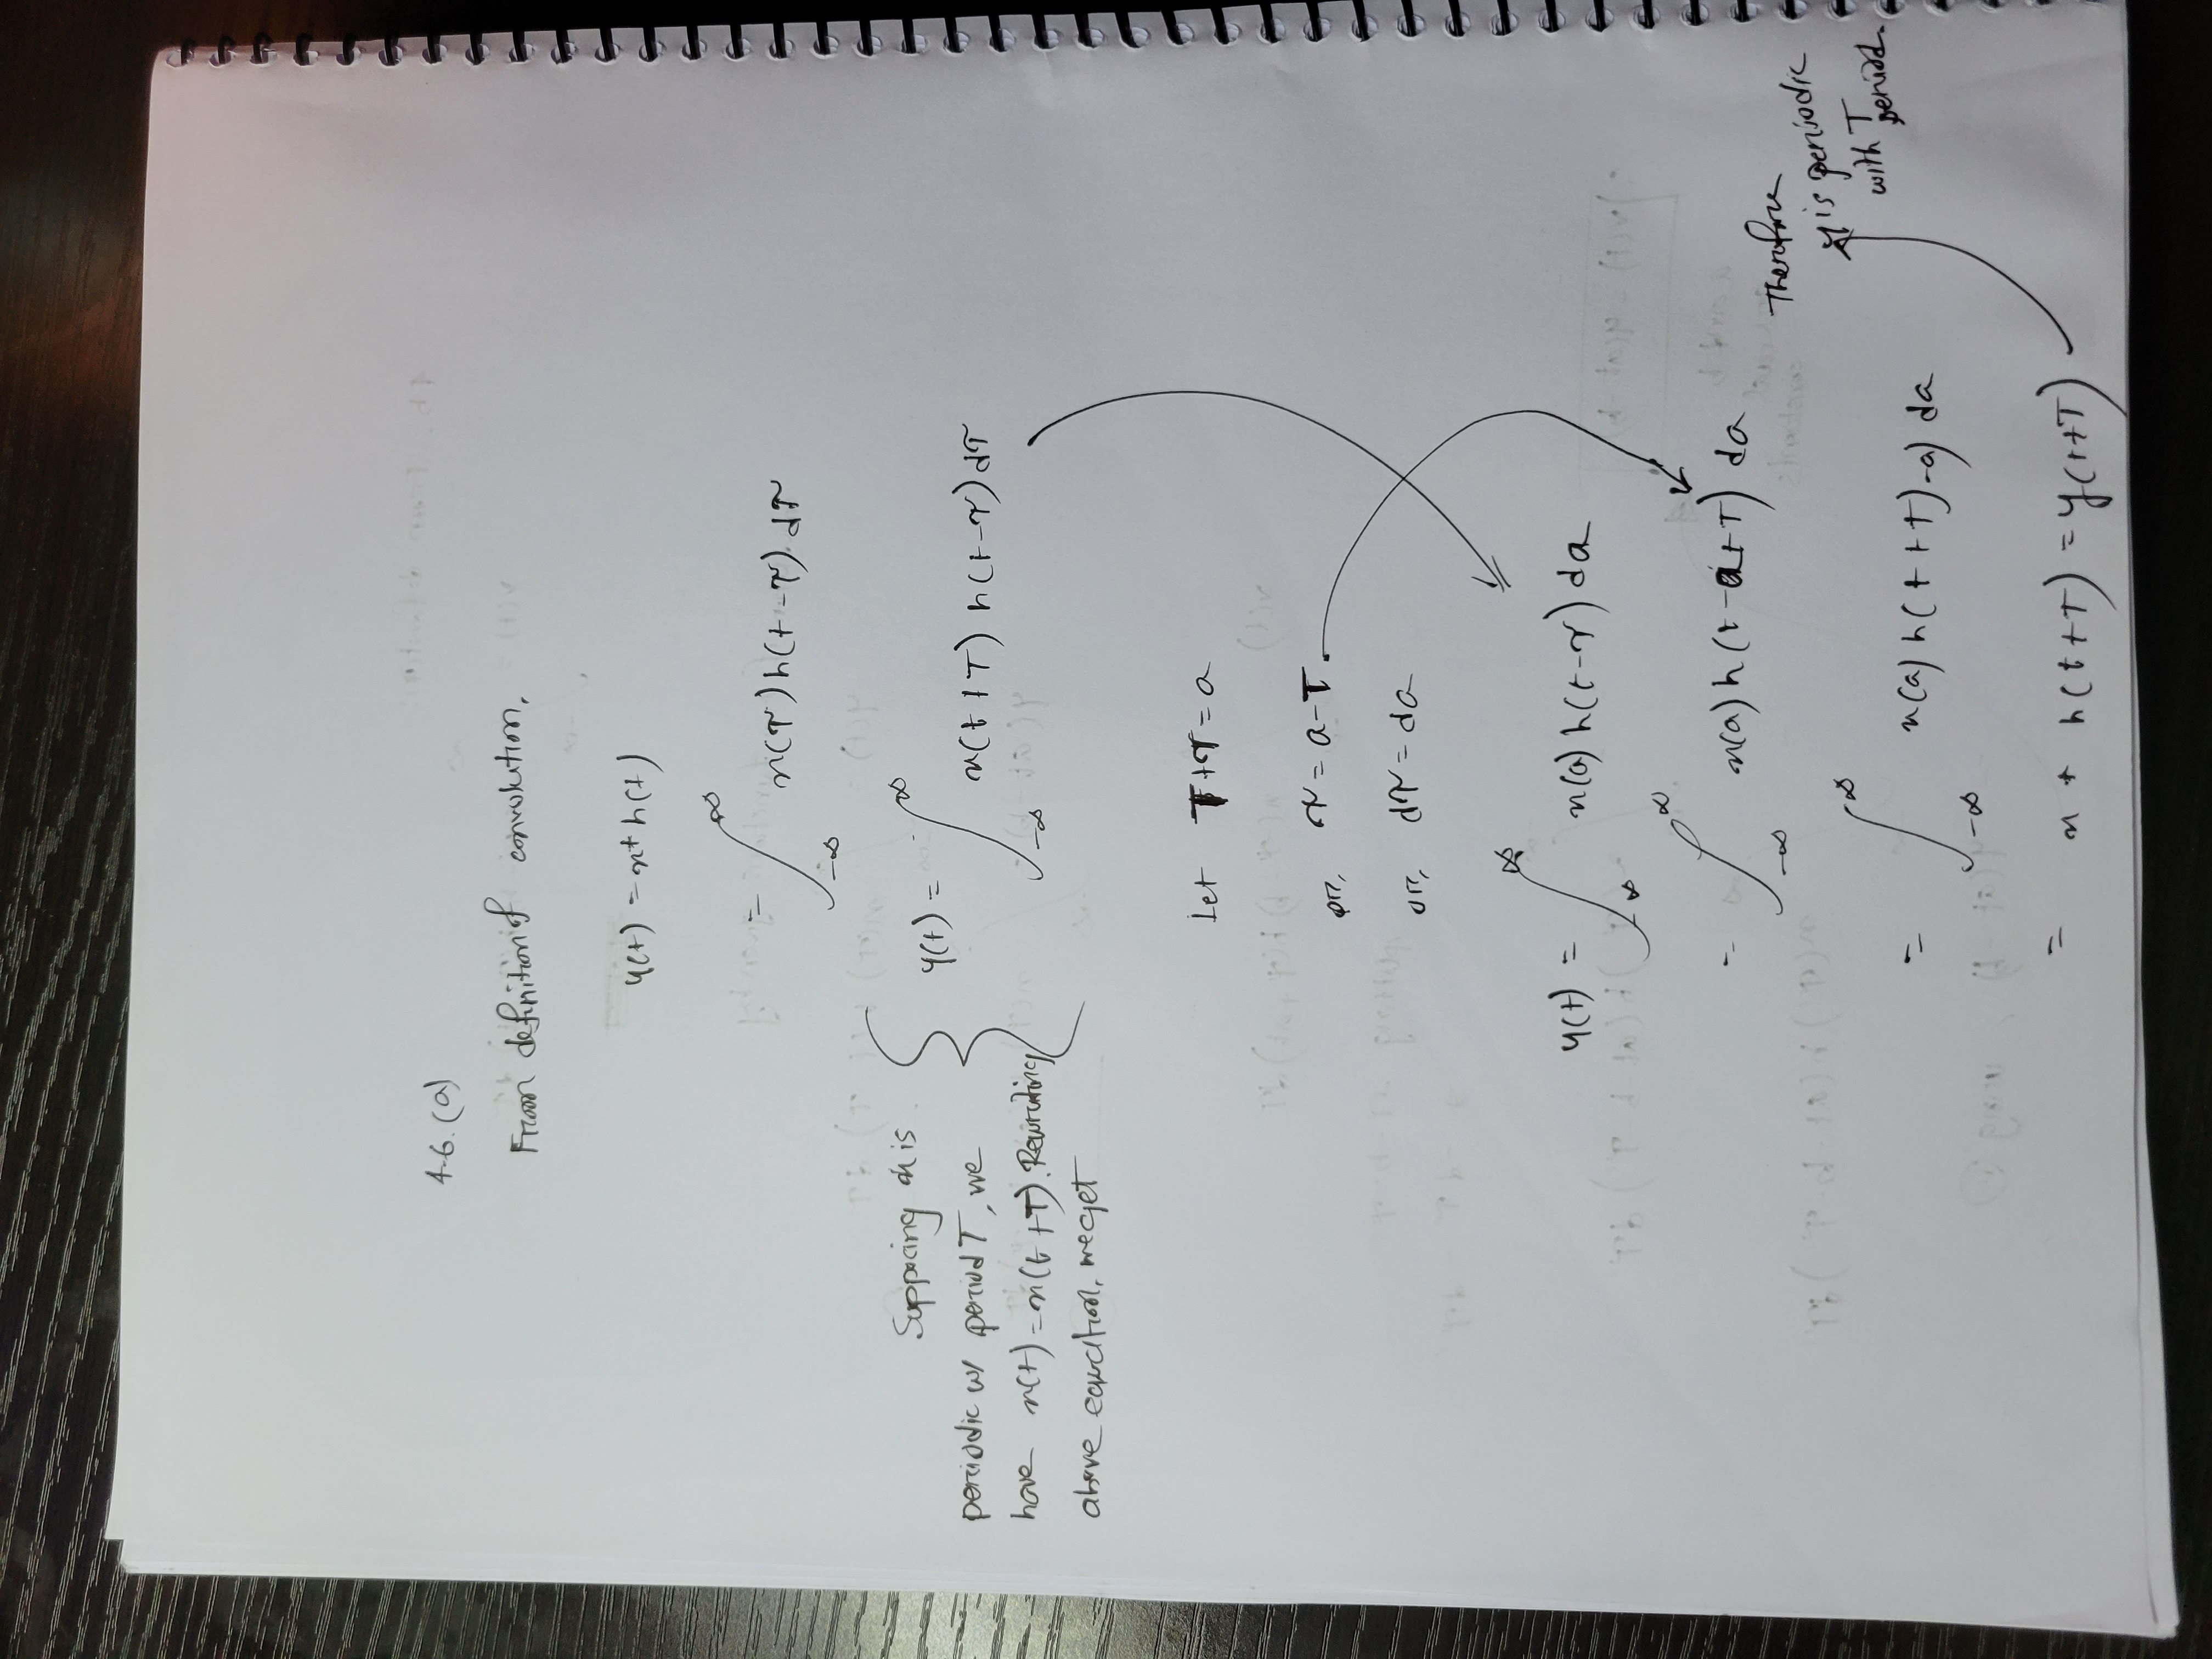 4.6. (a)
From definition of convolution,
y(t) = x * h(t)
= ∫_{-∞}^{∞} x(τ) h(t-τ) dτ
Supposing x is
periodic w/ period T, we
have x(t) = x(t+T). Rewriting
above equation, we get
y(t) = ∫_{-∞}^{∞} x(t+T) h(t-τ) dτ
Let T+τ = a
or, τ = a-T
or, dτ = da
y(t) = ∫_{-∞}^{∞} x(a) h(t-τ) da
= ∫_{-∞}^{∞} x(a) h(t-a+T) da
= ∫_{-∞}^{∞} x(a) h(t+T)-a) da
= x * h(t+T) = y(t+T)
Therefore
y is periodic
with T
period.